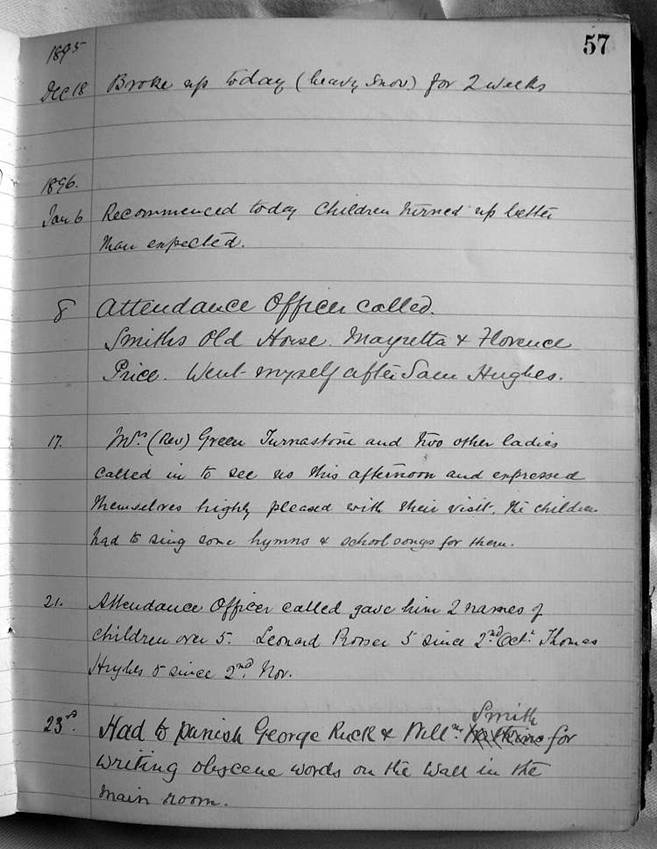 57
1895
Dec 18 Broke up today (heavy snow) for 2 weeks
1896.
Jan 6 Recommenced today Children turned up better
than expected.
8 Attendance Officer called.
Smiths Old House. Mayretta & Florence
Price. Went myself after Sam Hughes.
17. Mrs (Rev) Green Turnastone and two other ladies
called in to see us this afternoon and expressed
themselves highly pleased with their visit. The children
had to sing some hymns & school songs for them.
21. Attendance Officer called gave him 2 names of
children over 5. Leonard Prosser 5 since 2nd Oct. Thomas
Hughes 5 since 2nd Nov.
Smith
23rd Had to punish George Ruck & Willm for
writing obscene words on the wall in the
main room.